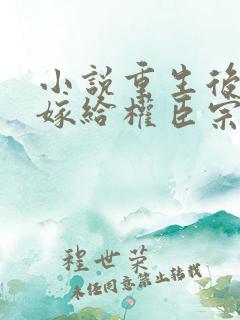 小説重生後
嫁給權臣宗
程世荣
未经同意禁止转载